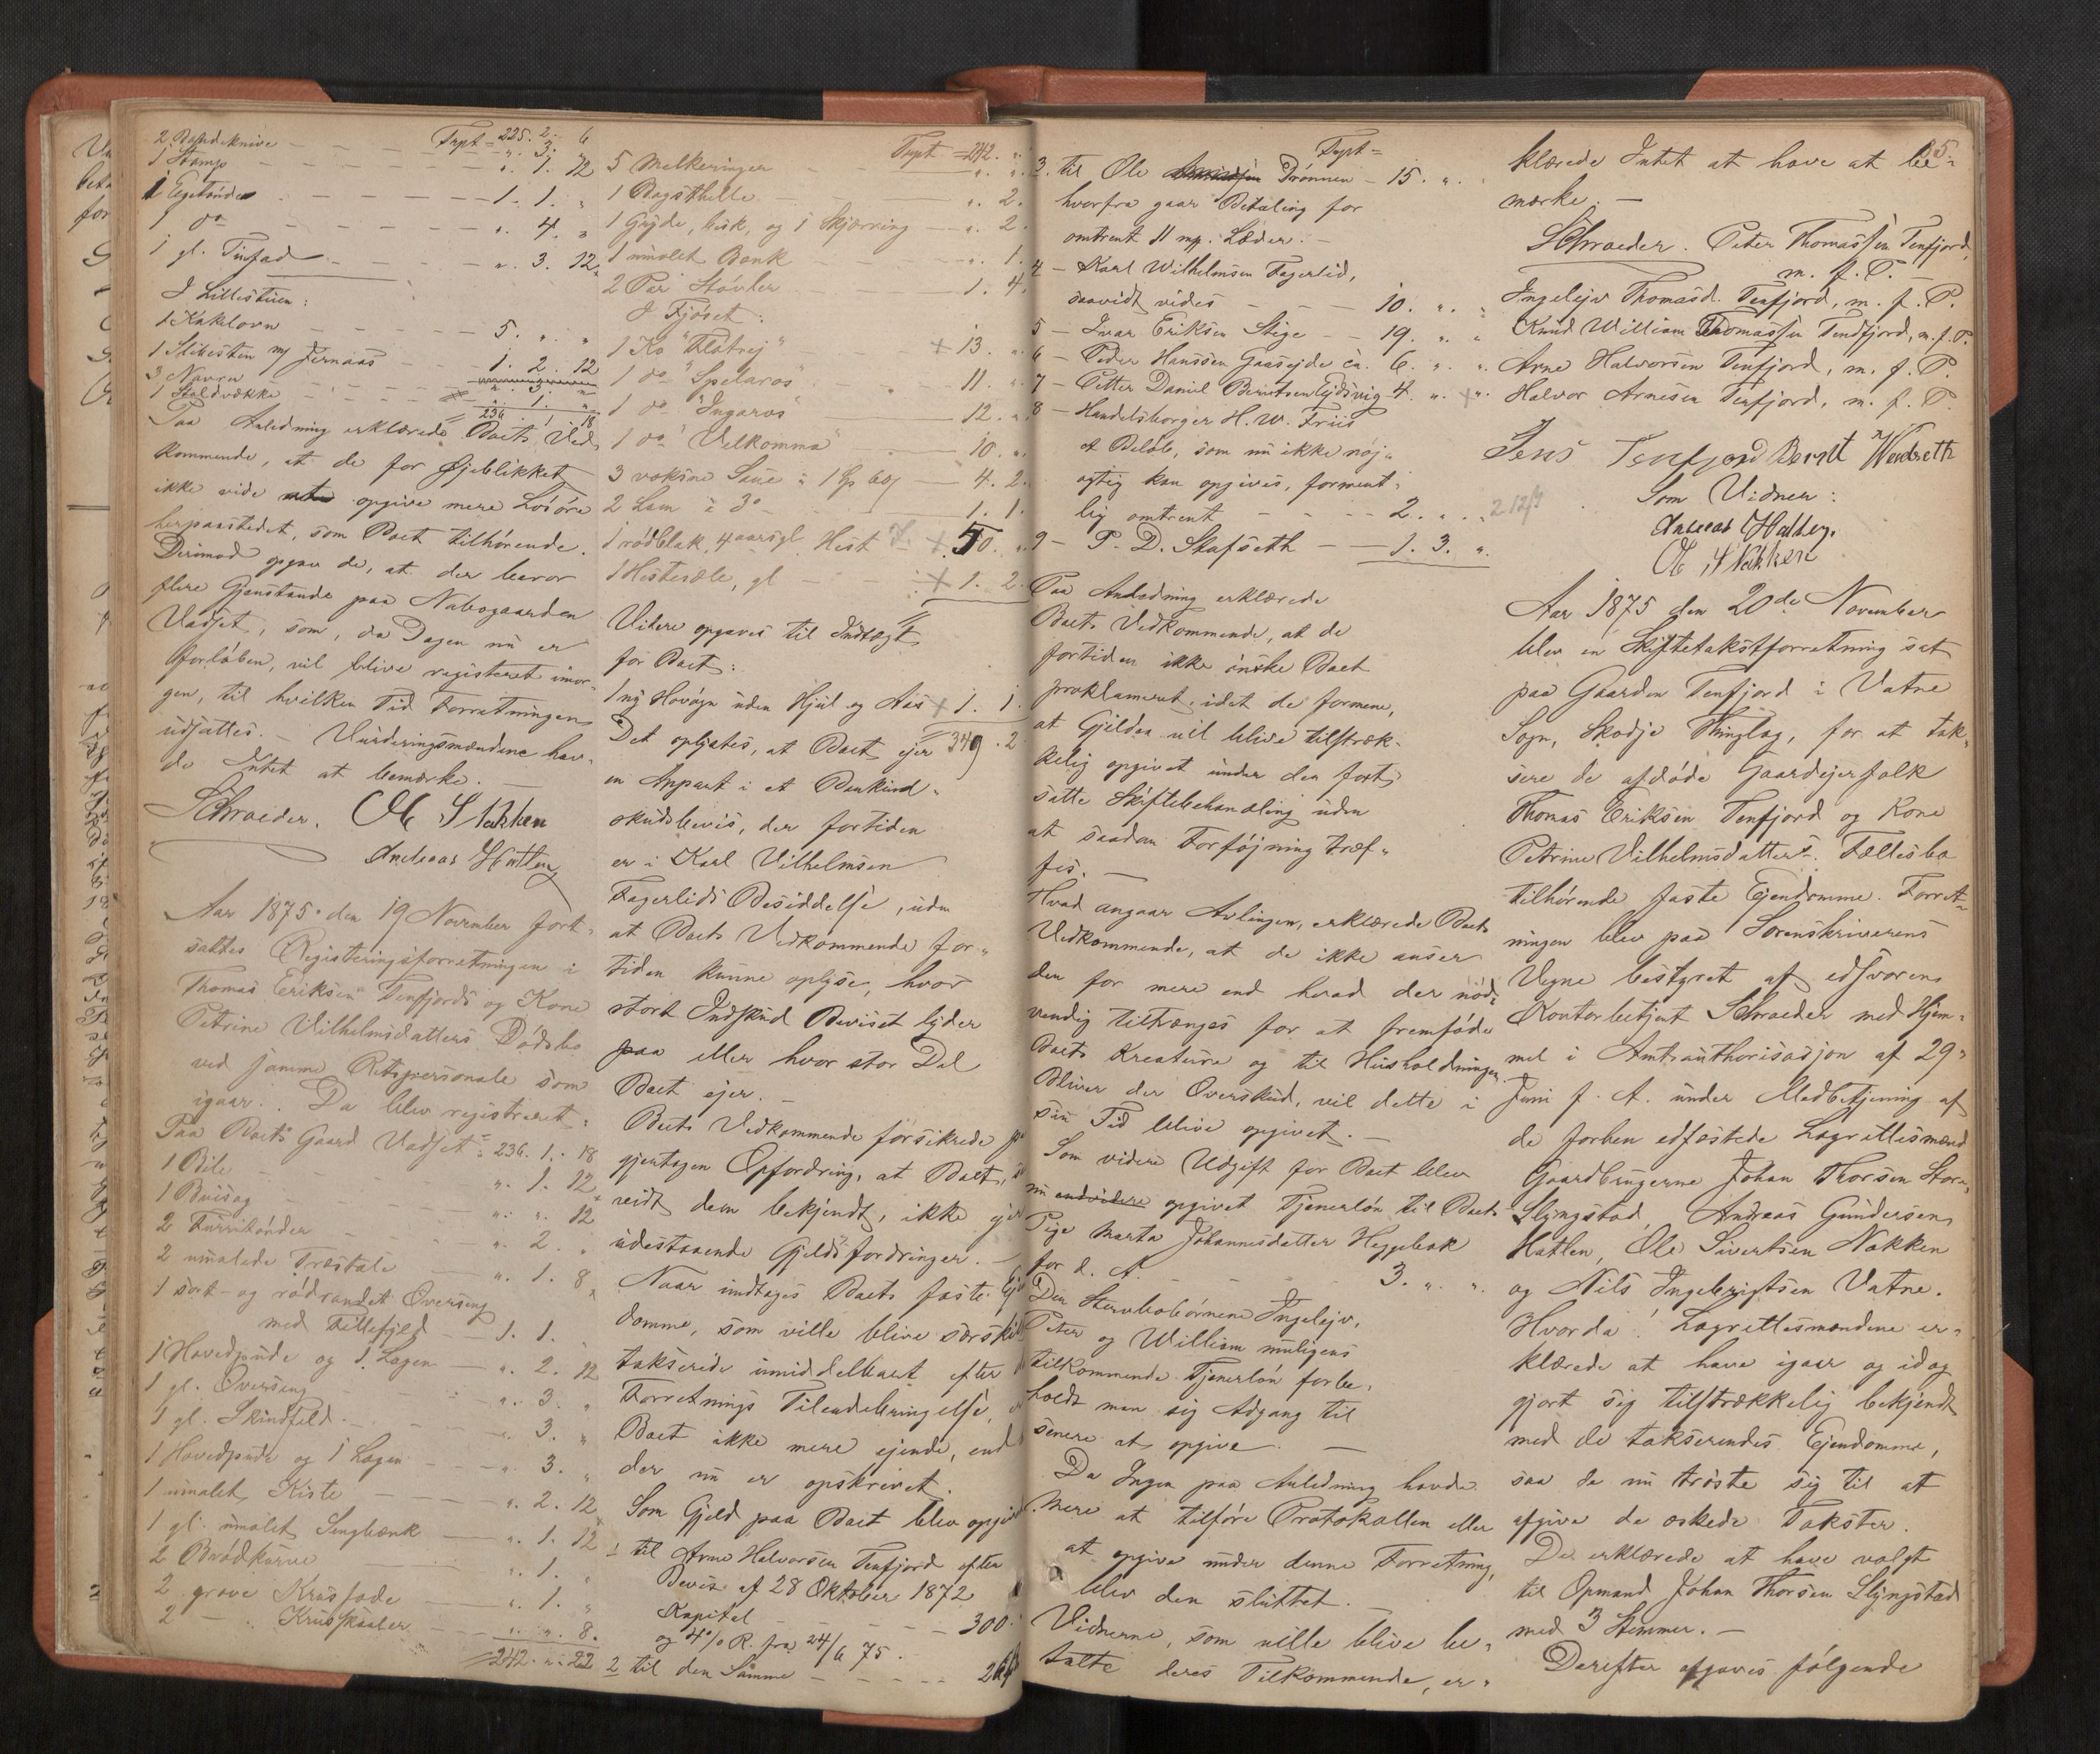 Trpt = 225. 2. 6
2 Baandknive - - - - ". 3. "
1 Stamp - - - - ". 1. 12
1 Egetønde - - - - 1. 1. "
1 do - - - - ". 4. "
1 gl. Tinfad - - - - ". 3. 12
I Lillestuen:
1 Kakkelovn - - - - 5. ". "
1 Slibesten m/ Jernaas - - 1. 2. 12
3 Navre - - - - ". 3. "
1 - - - - ". 1. "
236. 1. 18
Paa Anledning erklærede Boets Ved-
kommende, at de for Øjeblikket
ikke vide at opgive mere Løsøre
herpaastedet, som Boet tilhørende.
Derimod opgav de, at der beror
flere Gjenstande paa Nabogaarden
Vadset, som, da Dagen nu er
forløben, vil blive registreret imor-
gen, til hvilken Tid Forretningen
udsattes. - Vurderingsmændene hav-
de Intet at bemærke. -
Schrøeder. Ole S Nakken
Andreas Hatlen
Aar 1875 den 19 November fort-
sattes Registeringsforretningen i
Thomas Eriksen Tenfjords og Kone
Petrine Vilhelmsdatters Dødsbo
ved samme Retspersonale som
igaar. Da blev registreret:
Paa Boets Gaard Vadset: 236. 1. 18
1 Bile - - - - ". 1. 12
1 Buesag - - - - ". ". 12
2 Tørritønder - - - - ". 2. "
2 umalede Træstole - - ". 1. 8
1 sort- og rødrandet Overseng
med Littefjeld - - 1. 1.
1 Hovedpude og 1 Lagen - - ". 2. 12
1 gl. Overseng - - - - ". 3. "
1 gl. Skindfeld - - - - ". 3. "
1 Hovedpude og 1 Lagen - - ". 3. "
1 umalet Kiste - - - - ". 2. 12
1 gl. umalet Sengbænk - - ". 1. 12
2 Brødkurve - - - - ". 1. "
2 grove Krusfade - - - - ". 1. "
2 - " - Krusskaaler - - ". ". 8.
242. ". 22
Trpt = 242. ".
5 Melkeringer - - - - ". ".
1 Bagsthelle - - - - ". 2.
1 Gryde, lisk, og 1 Skjørning - - ". 2.
1 umalet Bænk - - - - ". 1.
2 Par Støvler - - - - 1. 4.
I Fjøset:
1 Ko "Flatrej" - - + 13. ".
1 do "Spelaros" - - 11. ".
1 do "Ingaros" - - 12. ".
1 do "Velkomma" - - 10. ".
3 voksne Sauer à 1 Sp 60 ß - - 4. 2.
2 Lam à 3 o - - 1. 1.
1 rødblak, 4 aarsgl. Hest + 50. ".
1 Hestesæle, gl - - + 1. 2.
Videre opgaves til Indtægt
for Boet:
1 ny Hovogn uden Hjul og Aas + 1. 1.
349. 2
Det oplystes, at Boet ejer
en Anpart i et Bankind-
skudsbevis, der fortiden
er i Karl Vilhelmsen
Fagerlids Besiddelse, uden
at Boets Vedkommende for-
tiden kunne oplyse, hvor
stort Indskud Beviset lyder
paa eller hvor stor Del
Boet ejer. -
Boets Vedkommende forsikrede pa
gjentagen Opfordring, at Boet, s
vidt dem bekjendt, ikke ejer
udestaaende Gjeldsfordringer. -
Naar undtages Boets faste Ej
domme, som ville blive særski
takserede umiddelbart efter
Forretnings Tilendebringelse,
Boet ikke mere ejende, end
der nu er opskrevet.
Som Gjeld paa Boet blev opgiv
1 til Arne Halvorsen Tenfjord efter
Bevis af 28 Oktober 1872
Kapital - - - - 300.
og 4% R. fra 24/6 75.
2 til den Samme - - - -
Trpt =
3. til Ole Drønnen - 15. ". "
hvorfra gaar Betaling for
omtrent 11 mp. Læder. -
4 - Karl Wilhelmsen Fagerlid,
saavidt vides - - - 10. ". "
5 - Ivar Eriksen Stige - - 19. ". "
6 - Peder Hanssen Gaasejde ca. 6. ". "
7 - Petter Daniel Berntsen Eidsvig 4. ". "
8 - Handelsborger H. W. Friis
et Beløb, som nu ikke nøj-
agtig kan opgives, forment-
lig omtrent - - - - 2. ". " 2 12/
9 - P. D. Skafseth - - 1. 3. ".
Paa Anledning erklærede
Boets Vedkommende, at de
fortiden ikke ønske Boet
proklameret, idet de formene,
at Gjelden vil blive tilstræk-
kelig opgivet under den fort-
satte Skiftebehandling uden
at saadan Forføjning træf-
fes. -
Hvad angaar Avlingen, erklærede Boets
Vedkommende, at de ikke anser
den for mere end hvad der nød-
vendig tiltrænges for at fremføde
Boets Kreature og til Husholdningen.
Bliver der Overskud, vil dette i
sin Tid blive opgivet. -
Som videre Udgift for Boet blev
nu endvidere opgivet Tjenerløn til Boets
Pige Marta Johannesdatter Heggebak
for d. A. - - - - 3. ". "
Den Stervbobørnene Ingelejv,
Peter og William muligens
tilkommende Tjenerløn forbe-
holdt man sig Adgang til
senere at opgive. -
Da Ingen paa Anledning havde
mere at tilføre Protokollen eller
at opgive under denne Forretning,
blev den sluttet. -
Vidnerne, som ville blive be-
talte deres Tilkommende, er-
5
klærede Intet at have at be-
mærke. -
Schrøeder. Peter Thomassen Tenfjord,
m. f. P.
Ingelejv Thomasd. Tenfjord, m. f. P.
Knud William Thomassen Tendfjord, m. f. P.
Arne Halvorsen Tenfjord, m. f. P.
Halvor Arnesen Tenfjord, m. f. P.
Jens Tenfjord Berdt
Som Vidner:
Andreas Hatlen.
Ole S Nakken
Aar 1875 den 20de November
blev en Skiftetakstforretning sat
paa Gaarden Tenfjord i Vatne
Sogn, Skodje Thinglag, for at tak-
sere de afdøde Gaardejerfolk
Thomas Eriksen Tenfjord og Kone
Petrine Vilhelmsdatters Fællesbo
tilhørende faste Ejendomme. Forret-
ningen blev paa Sorenskriverens
Vegne bestyret af edsvoren
Kontorbetjent Schrøeder med Hjem-
mel i Amtsauthorisasjon af 29-
Juni f. A. under Medbetjening af
de forhen edfæstede Lagrettesmænd
Gaardbrugerne Johan Thorsen Store-
Slyngstad, Andreas Gundersen
Hatlen, Ole Sivertsen Nakken
og Nils Ingebrigtsen Vatne.
Hvorda! Lagrettesmændene er-
klærede at have igaar og idag
gjort sig tilstrækkelig bekjendt
med de takserendes Ejendomme,
saa de nu trøste sig til at
afgive de æskede Takster.
De erklærede at have valgt
til Opmand Johan Thorsen Slyngstad
med 3 Stemmer. -
Derefter afgaves følgende